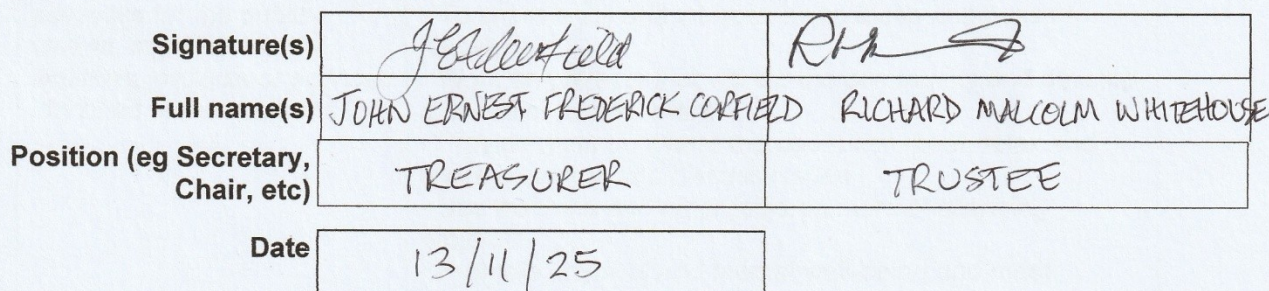 Signature(s)
Full name(s) JOHN ERNEST FREDERICK CORFIELD RICHARD MALCOLM WHITEHOUSE
Position (eg Secretary, TREASURER TRUSTEE
Chair, etc)
Date 13/11/25